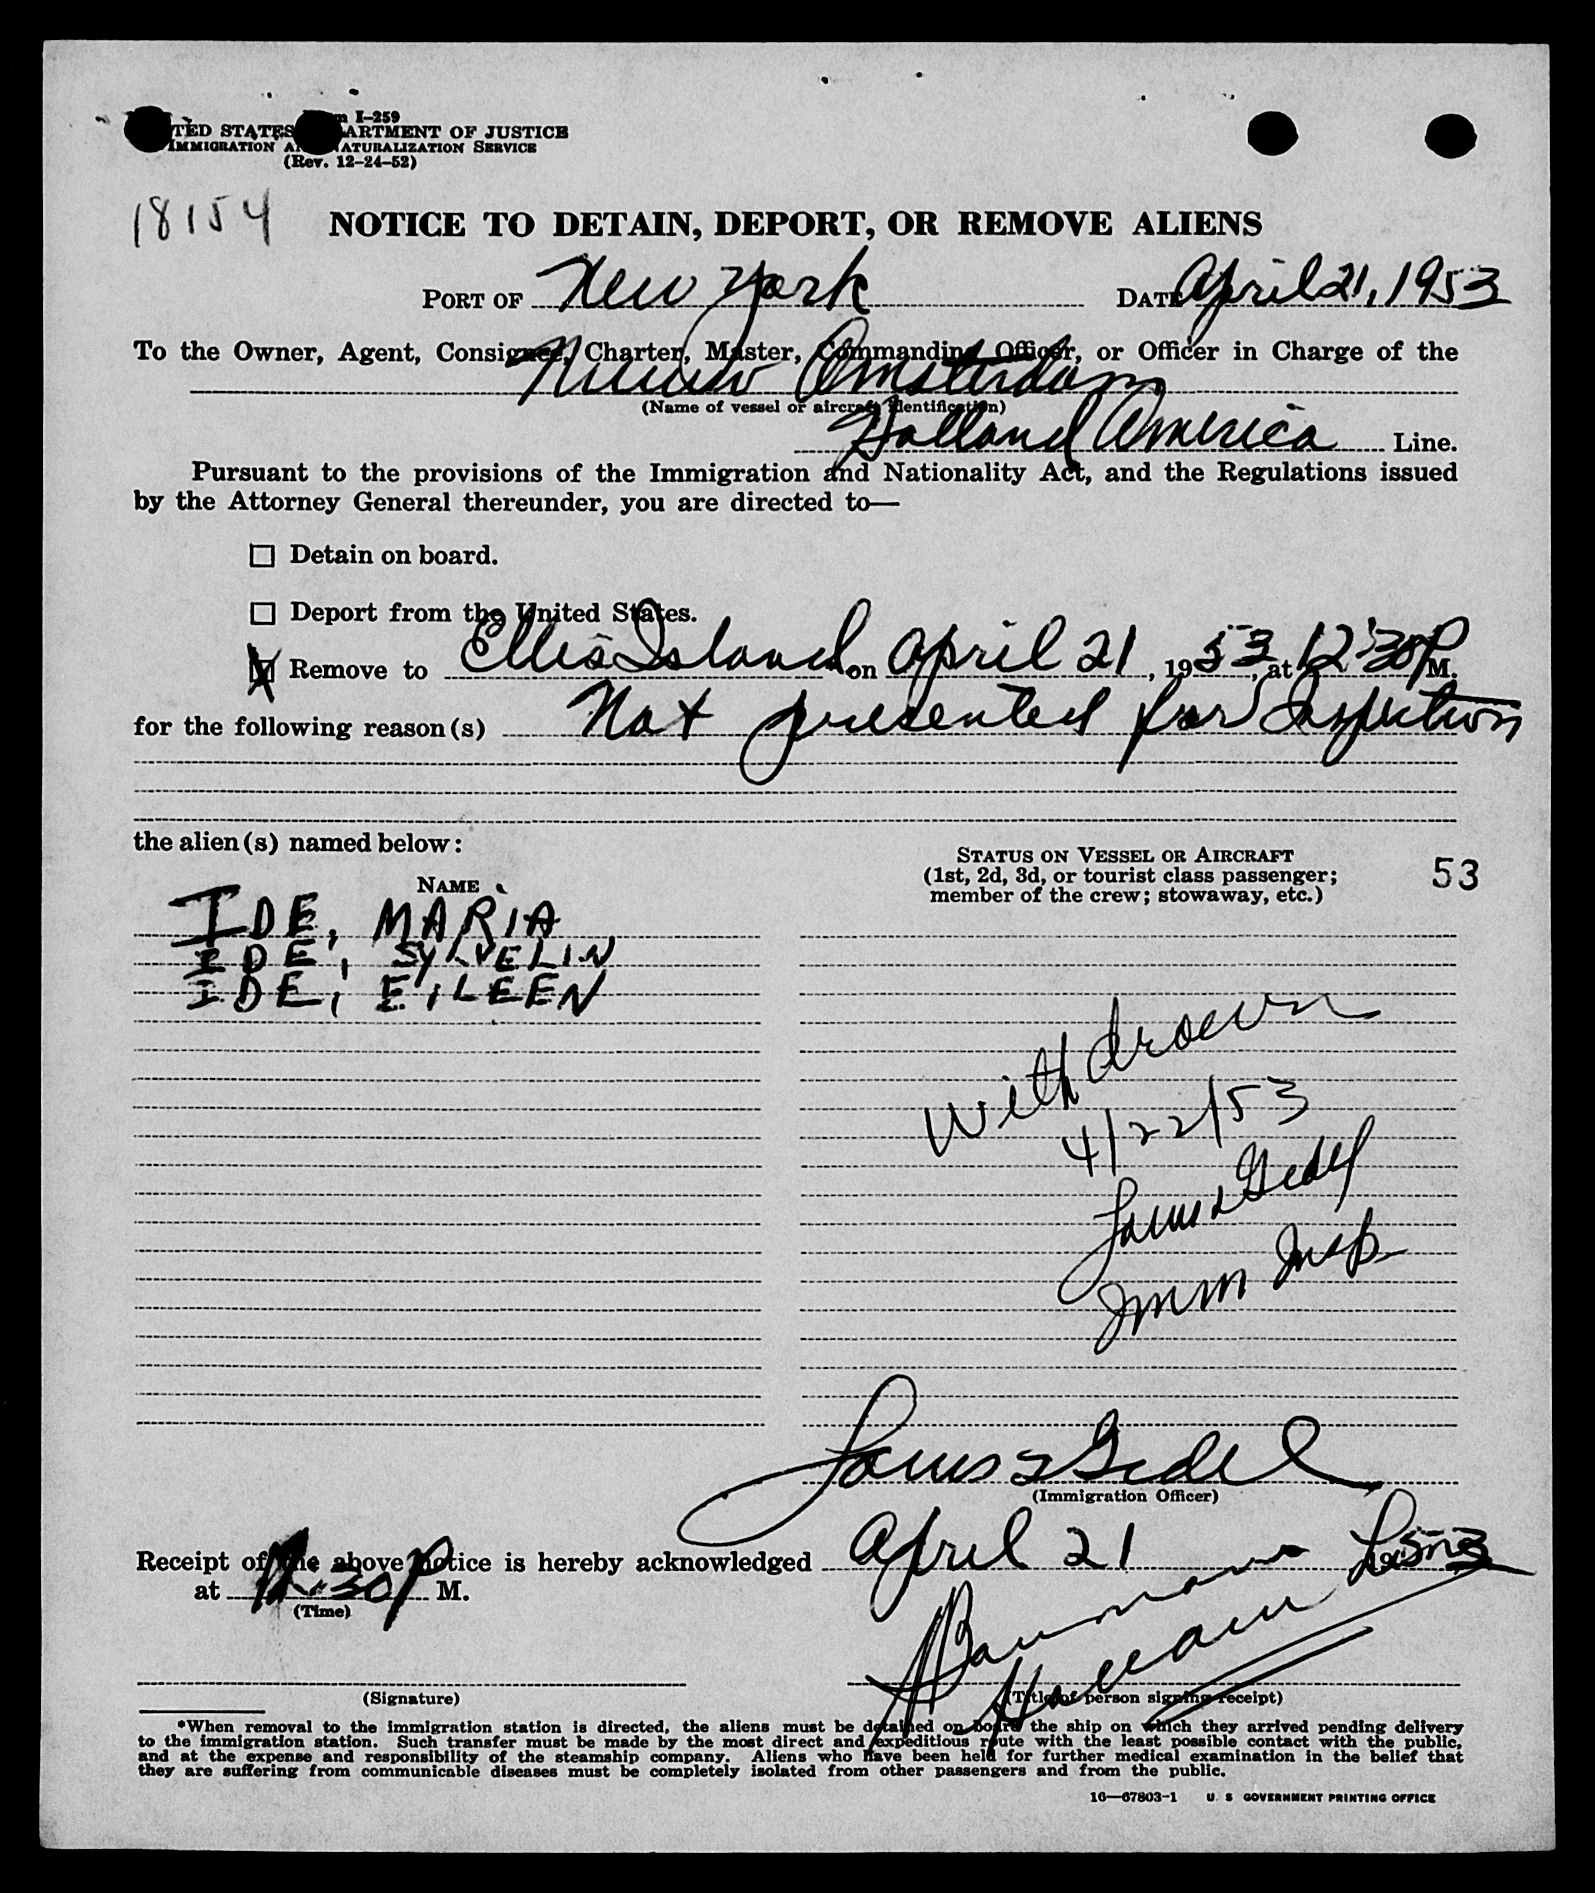 Form I-259
UNITED STATES DEPARTMENT OF JUSTICE
IMMIGRATION AND NATURALIZATION SERVICE
(Rev. 12-24-52)
18154
NOTICE TO DETAIN, DEPORT, OR REMOVE ALIENS
PORT OF New York DATE April 21, 1953
To the Owner, Agent, Consignee, Charter, Master, Commanding Officer, or Officer in Charge of the
Nieuw Amsterdam
(Name of vessel or aircraft identification)
Holland America Line.
Pursuant to the provisions of the Immigration and Nationality Act, and the Regulations issued
by the Attorney General thereunder, you are directed to—
Detain on board.
Deport from the United States.
X Remove to Ellis Island on April 21, 1953, at 12:30 P M.
for the following reason(s) Not presented for Inspection
the alien(s) named below:
STATUS ON VESSEL OR AIRCRAFT
(1st, 2d, 3d, or tourist class passenger;
member of the crew; stowaway, etc.)
53
NAME
IDE, MARIA
IDE, SYLVELIN
IDE, EILEEN
Withdrawn
4/22/53
Louis Gedel
Imm Insp
Louis Gedel
(Immigration Officer)
Receipt of the above notice is hereby acknowledged April 21 1953
at 12:30 P M.
(Time)
(Signature)
(Title of person signing receipt)
*When removal to the immigration station is directed, the aliens must be detained on board the ship on which they arrived pending delivery
to the immigration station. Such transfer must be made by the most direct and expeditious route with the least possible contact with the public,
and at the expense and responsibility of the steamship company. Aliens who have been held for further medical examination in the belief that
they are suffering from communicable diseases must be completely isolated from other passengers and from the public.
16—67803-1 U. S. GOVERNMENT PRINTING OFFICE